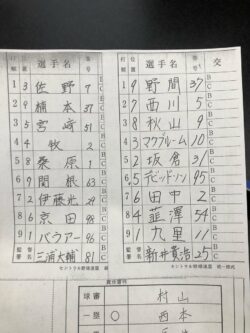 打順 位置 選手名 番号
1 3 佐野 7 B C
2 9 楠本 37 B C
3 5 宮﨑 51 B C
4 4 牧 2 B C
5 8 桑原 1 B C
6 7 関根 63 B C
7 2 伊藤光 29 B C
8 6 京田 98 B C
9 1 バウアー 96 B C
監督 三浦大輔 81 B C
打順 位置 選手名 番号 交
1 9 野間 37 B C
2 7 西川 5 B C
3 8 秋山 9 B C
4 3 マクブルーム 10 B C
5 2 坂倉 31 B C
6 5 デビッドソン 95 B C
7 6 田中 2 B C
8 4 韮澤 54 B C
9 1 九里 11 B C
監督 新井貴浩 25 B C
セントラル野球連盟
セントラル野球連盟 統一様式
責任審判
球審 村山
一塁 〇 西本